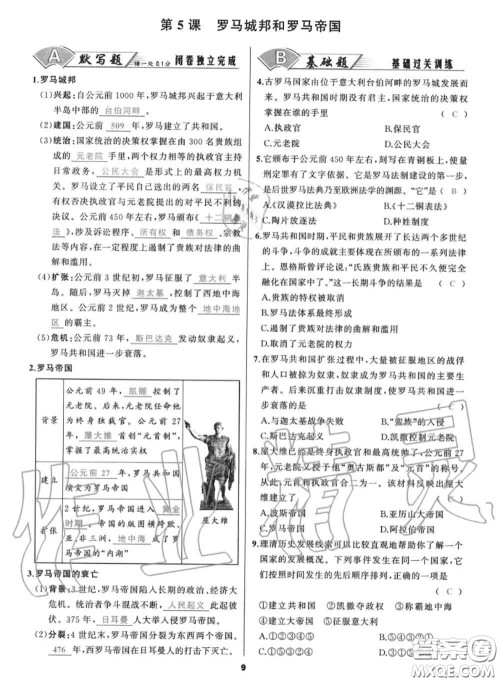 第 5 课 罗马城邦和罗马帝国
A 默写题 闭卷独立完成
1.罗马城邦
(1)兴起:自公元前 1000 年,罗马城邦兴起于意大利
半岛中部的 台伯河畔 。
(2)建国:公元前 509 年,罗马建立了共和国。
(3)统治:国家统治的决策权掌握在由 300 名贵族组
成的 元老院 手里,两个权力相等的执政官主持
日常政务, 公民大会 是形式上的最高权力机
关。罗马设立了平民自己选出的两名 保民官 ,
有权否决执政官与元老院提出的对平民不利的
决议。公元前 450 年左右,罗马颁布《 十二铜表
法 》,涉及诉讼程序、 所有权 和 债务权 、宗教
法等内容,在一定程度上遏制了贵族对法律的曲
解和滥用。
(4)扩张:公元前 3 世纪初,罗马征服了 意大利 半
岛。随后,罗马灭掉 迦太基 ,控制了西地中海
地区。公元前 2 世纪,罗马成为整个 地中海地
区 的霸主。
(5)危机:公元前 73 年, 斯巴达克 发动奴隶起义,
罗马共和国进一步衰落。
2.罗马帝国
背景
公元前 49 年, 凯撒 控制了
元老院。后来,元老院任命他
为终身独裁官。公元前 27
年, 屋大维 首创“元首制”,
掌握了最高统治实权
建立
公元前 27 年 ,罗马共和国
演变为罗马帝国
扩张
2 世纪,罗马进入 黄金
时期 。帝国的版图横跨欧、
亚、非三洲, 地中海 成了
罗马帝国的“内湖”
屋大维
3.罗马帝国的衰亡
(1)背景:3 世纪,罗马帝国陷入长期的政治、经济大
危机。统治者争斗混战不断, 人民起义 此起彼
伏。375 年, 日耳曼 人大举入侵罗马帝国。
(2)分裂:4 世纪末,罗马帝国分裂为东西两个帝国。
476 年,西罗马帝国在日耳曼人的打击下灭亡。
B 基础题 基础过关训练
4.古罗马国家由位于意大利台伯河畔的罗马城发展而
来。罗马共和国时期没有君主,国家统治的决策权
掌握在谁的手里 ( C )
A.执政官 B.保民官
C.元老院 D.公民大会
5.它颁布于公元前 450 年左右,刻写在青铜板上,使量
刑定罪有了文字依据。它是罗马法制建设的第一步,
是后世罗马法典乃至欧洲法学的渊源。“它”是 ( B )
A.《汉谟拉比法典》 B.《十二铜表法》
C.陶片放逐法 D.种姓制度
6.罗马共和国时期,平民和贵族展开了长达两个多世纪
的斗争,斗争的成就主要体现在所颁布的一系列法律
上。恩格斯曾评论说:“氏族贵族和平民不久便完全
融化在国家中了。”这一长期斗争的结果是 ( C )
A.贵族的特权被取消
B.罗马法体系最终形成
C.遏制了贵族对法律的曲解和滥用
D.平民地位超过了贵族
7.在罗马共和国扩张过程中,大量被征服地区的战俘
和人口被掠为奴隶,奴隶成为罗马共和国的主要生
产者。后来沉重打击奴隶制度,使罗马共和国进一
步衰落的是 ( C )
A.与迦太基战争失败 B.“蛮族”的入侵
C.斯巴达克起义 D.凯撒控制元老院
8.屋大维已经是终身执政官和最高祭司了,公元前 27
年,元老院又授予他“奥古斯都”及“元首”的称号,从
此,他把一切国家权力合二为一。该材料反映出屋大
维建立的是 ( C )
A.波斯帝国 B.亚历山大帝国
C.罗马帝国 D.阿拉伯帝国
9.理清历史发展线索可以比较直观地帮助你了解一个
国家的发展史。下列事件发生在同一个国家,请将
事件发生的先后顺序排列,正确的一项是
( C )
①建立共和国 ②凯撒夺政权 ③称霸地中海
④建立帝国 ⑤兴起
A.①③②④⑤
9